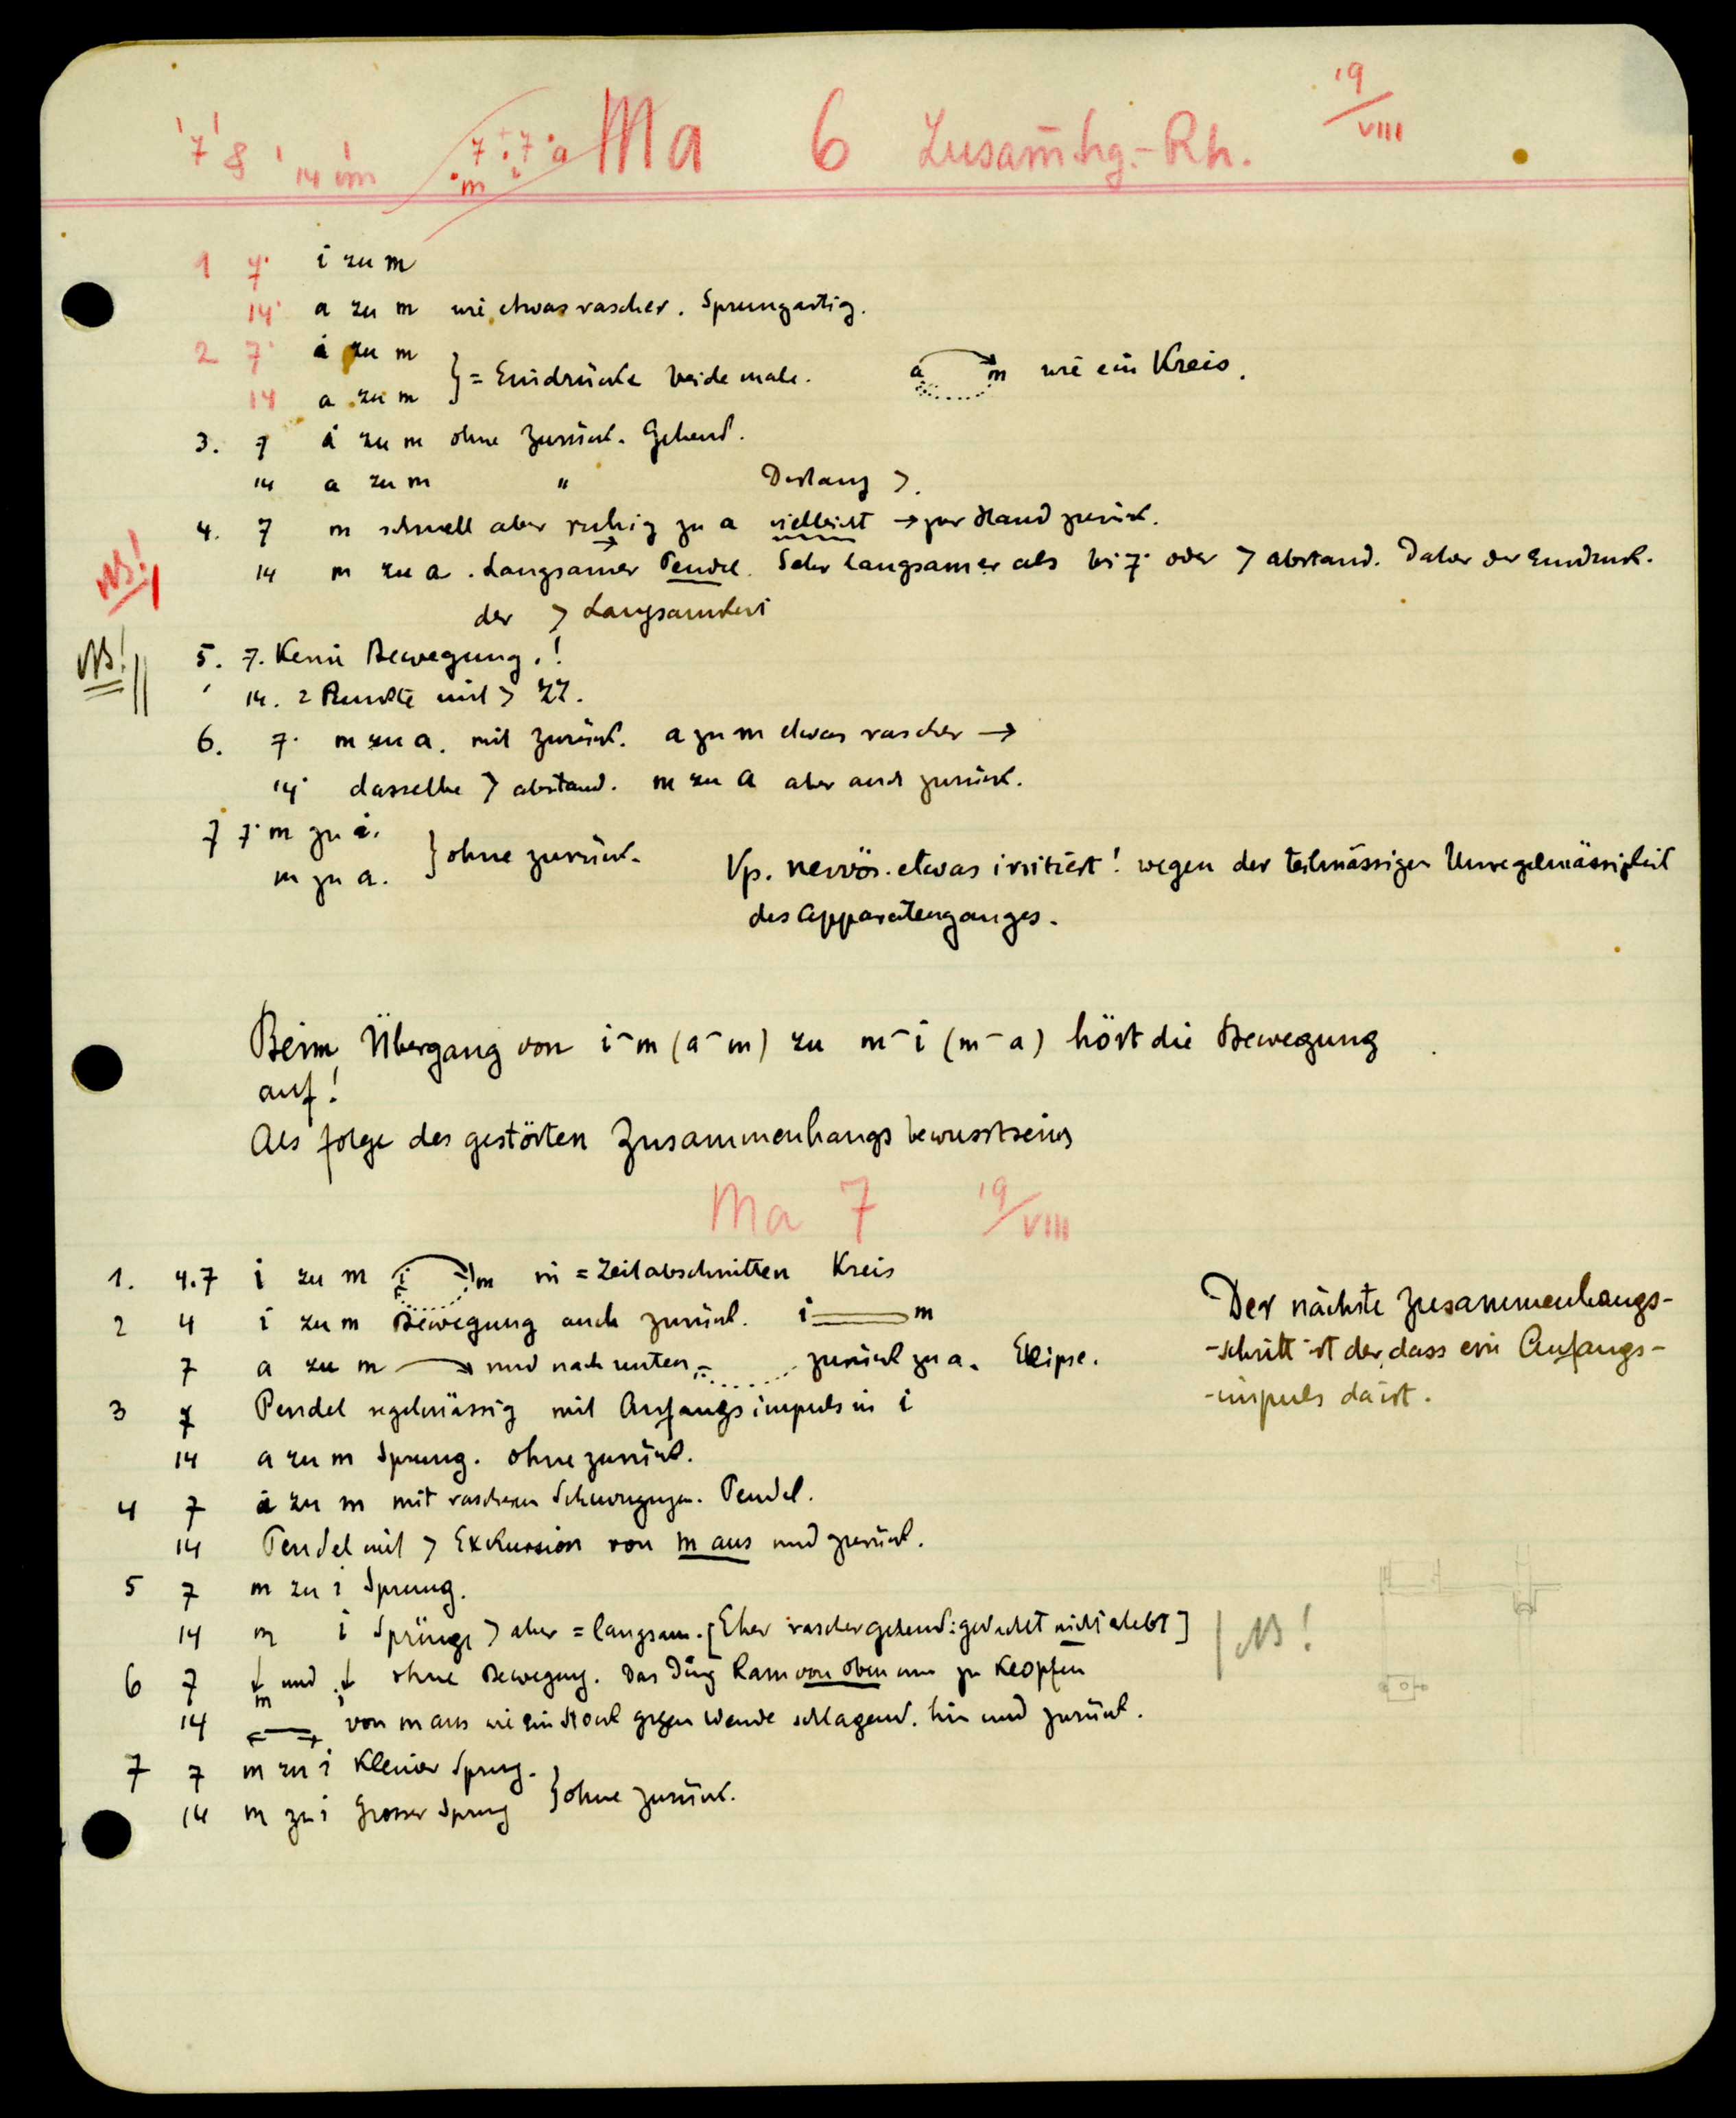 '7' 8 ' 14 im 7 + 7 · a m i Ma 6 Zusam̄hg.-Rh. 19/VIII
1 7· i zu m
14· a zu m wie etwas rascher. Sprungartig.
2 7· i zu m
14 a zu m } = Eindrücke beide male. a m wie ein Kreis.
3. 7 i zu m ohne Zurück. Gehend.
14 a zu m " Distanz >.
4. 7 m schnell aber ruhig zu a vielleicht → zur Hand zurück.
NB!
14 m zu a. Langsamer Pendel. Sehr langsamer als bei 7· oder > abstand. Daher der Eindruck.
der > Langsamkeit
NB!
5. 7. Keine Bewegung.!
14. 2 Punkte mit > ZZ.
6. 7· m zu a. mit zurück. a zu m etwas rascher →
14· dasselbe > abstand. m zu a aber auch zurück.
7 7· m zu i.
m zu a. } ohne zurück.
Vp. nervös. etwas irritiert! wegen der teilmässigen Unregelmässigkeit
des Apparatenganges.
Beim Übergang von i⁻m (a⁻m) zu m⁻i (m⁻a) hört die Bewegung
auf!
Als folge des gestörten Zusammenhangsbewusstseins
Ma 7 19/VIII
1. 4.7 i zu m i m in = Zeitabschnitten Kreis
2 4 i zu m Bewegung auch zurück. i m
7 a zu m → und nach unten zurück zu a. Elipse.
3 7 Pendel regelmässig mit Anfangsimpuls in i
14 a zu m Sprung. ohne zurück.
4 7 i zu m mit rascheren Schwingungen. Pendel.
14 Pendel mit > Exkursion von m aus und zurück.
5 7 m zu i Sprung.
14 m i Sprünge > aber = langsam. [Eher rascher gehend: gedacht nicht erlebt] | NB!
6 7 ↓ m und ↓ i ohne Bewegung. Das Ding kam von oben um zu klopfen
14 ←→ von m aus wie ein Stock gegen Wände schlagend. hin und zurück.
7 7 m zu i Kleiner Sprung.
14 m zu i Grosser Sprung } ohne zurück.
Der nächste Zusammenhangs-
-schritt ist der, dass ein Anfangs-
-impuls da ist.